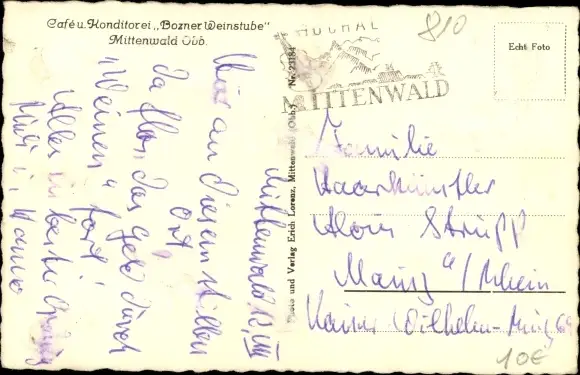 Café u. Konditorei „Bozner Weinstube"
Mittenwald Obb.
810
HOCHAL
MITTENWALD
Echt Foto
Nr. 23184
Foto und Verlag Erich Lorenz, Mittenwald (Obb.)
Mittenwald 12. VIII
Nur an diesem stillen
Ort
Da floß das Geld durch
"Weinen" fort!
Allen
Familie
Haarkünstler
Alois Strupp
Mainz a/Rhein
Kaiser Wilhelm-Ring 69
10€